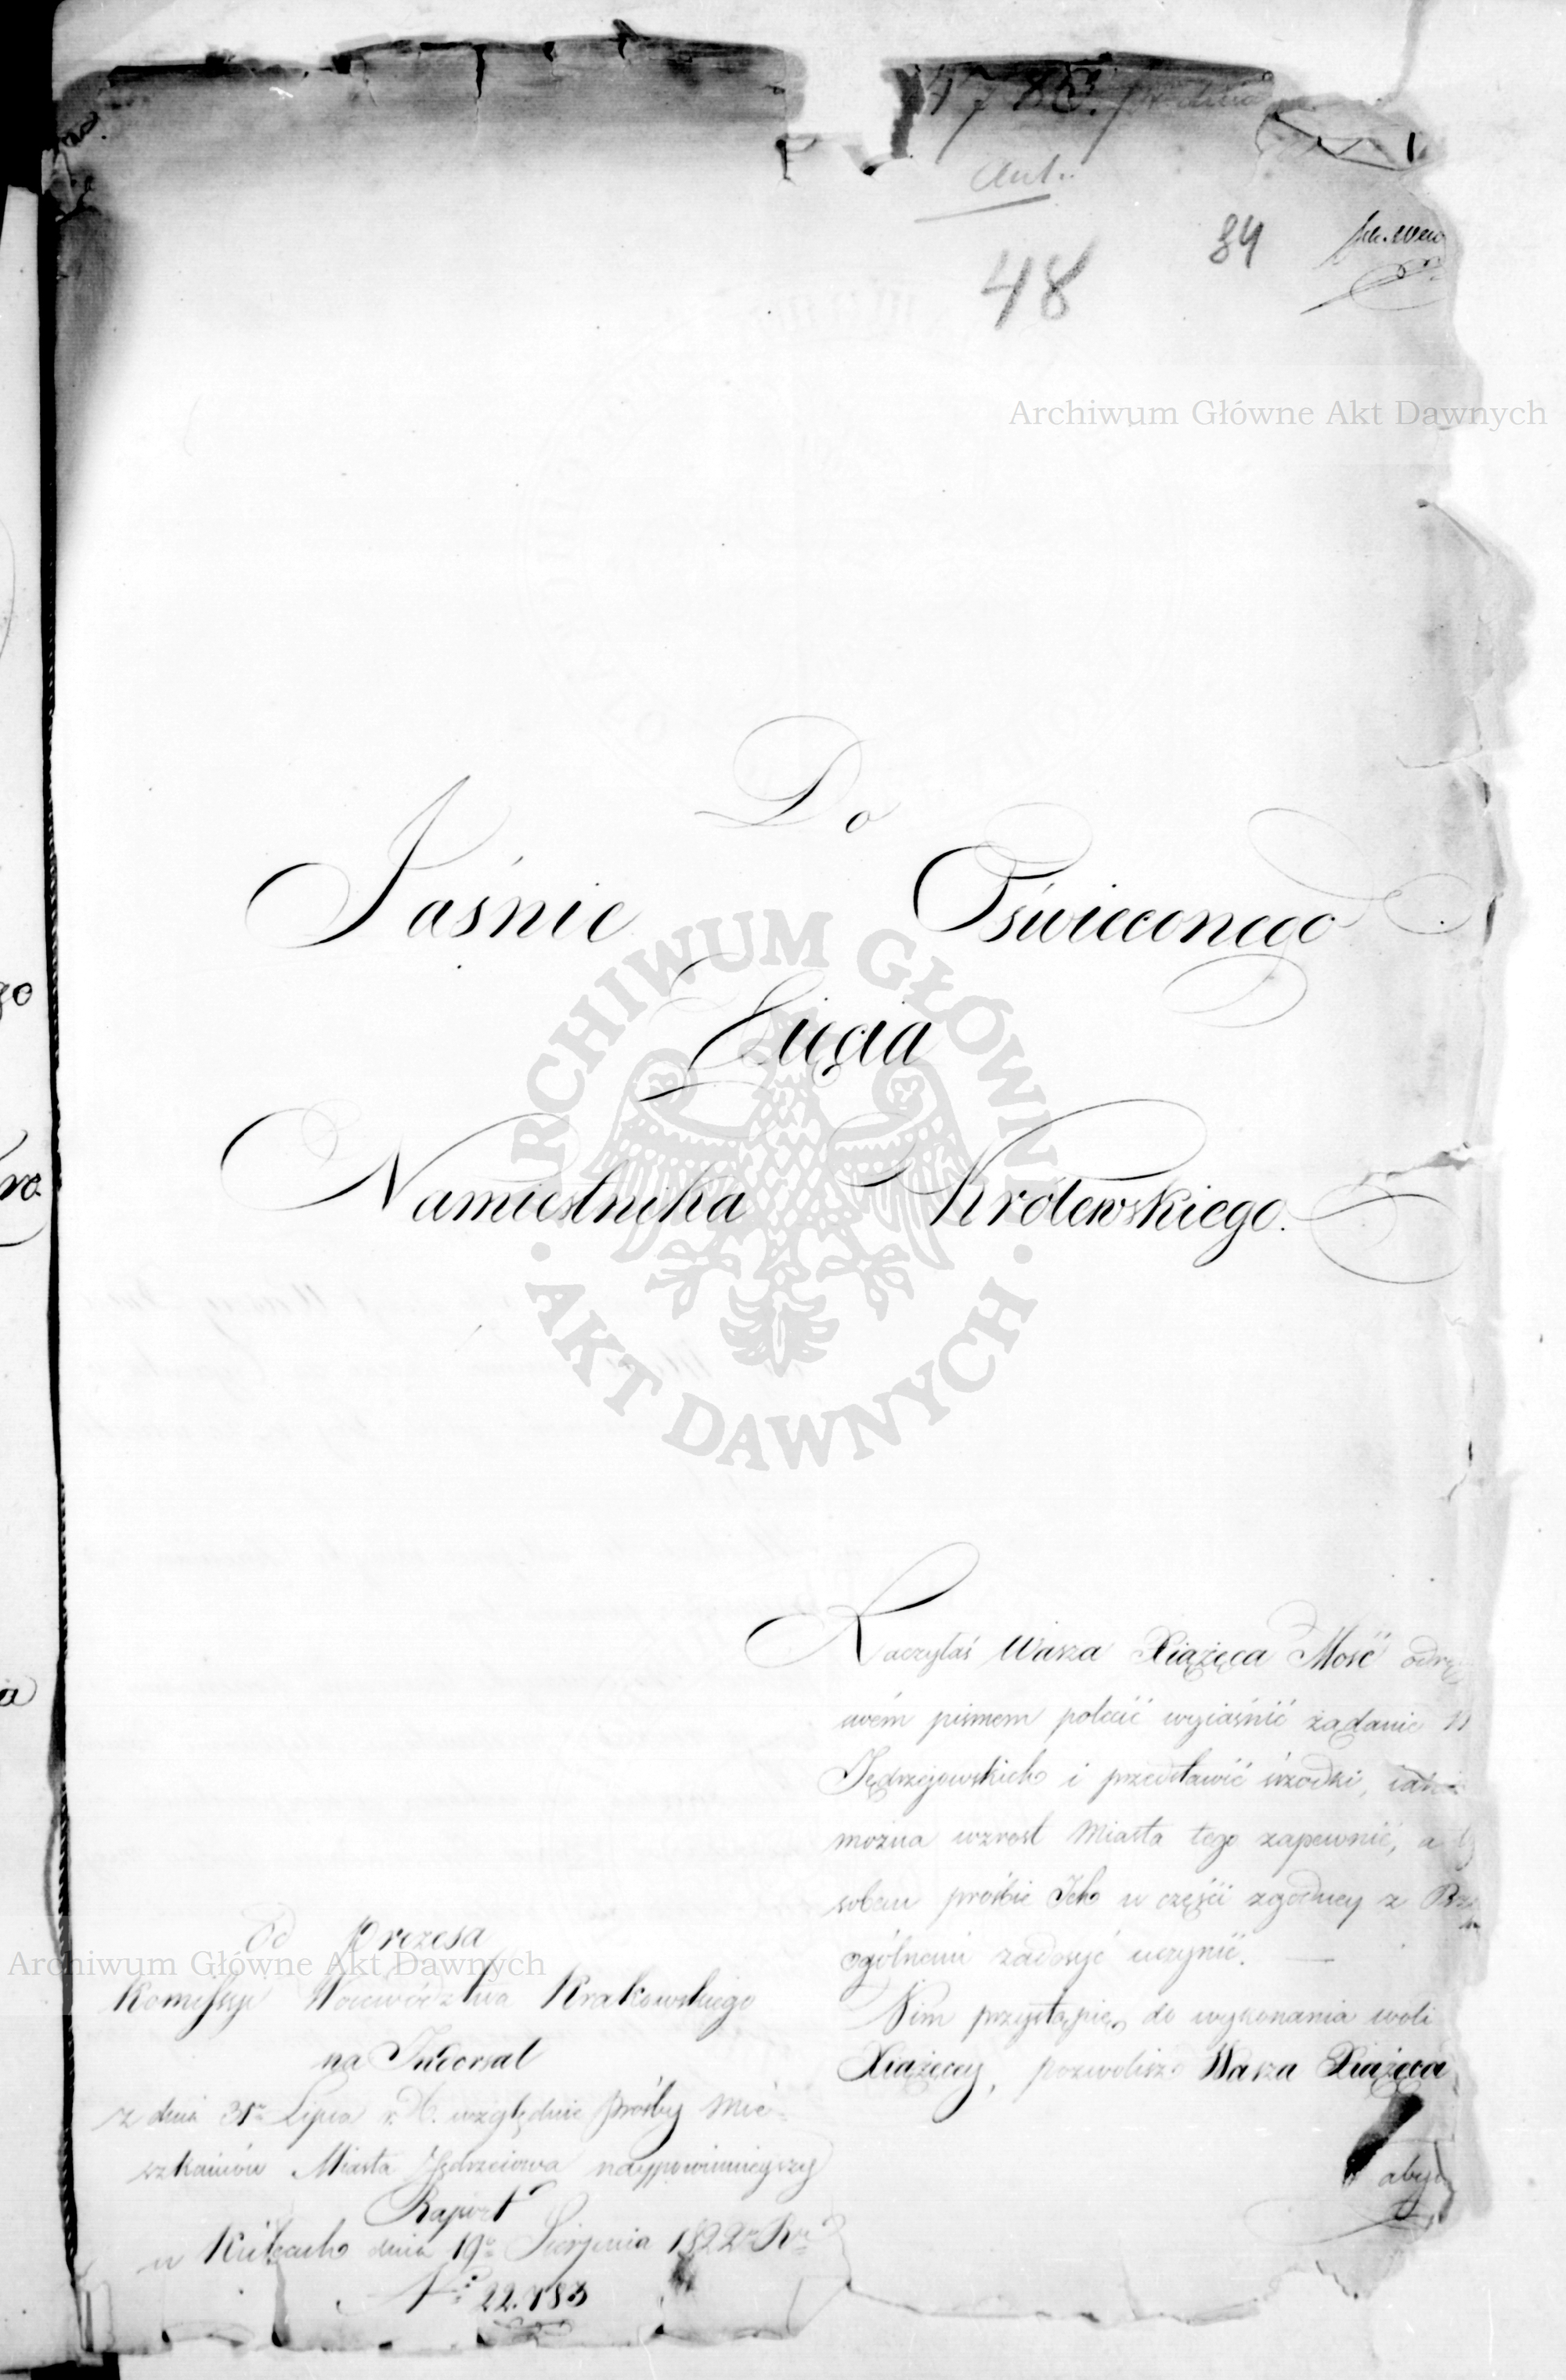 1788.
Ant.
48
84
Archiwum Główne Akt Dawnych
Do
Jaśnie Oświeconego
Xięcia
Namiestnika Królewskiego.
ARCHIWUM GŁÓWNE
· AKT DAWNYCH ·
Raczyłaś Wasza Xiążęca Mość odrę
wém pismem polecić wyiaśnić żądanie
Jędrzejowskich i przedstawić śrzodki,
można wzrost Miasta tego zapewnić, a
sobem prośbie Ich w części zgodney z
ogólnemi zadosyć uczynić. —
Nim przystąpię do wykonania woli
Xiążęcey, pozwolisz Wasza Xiążęca
abym
Od Prezesa
Archiwum Główne Akt Dawnych
Komissyi Woiewództwa Krakowskiego
na Indorsat
z dnia 31º Lipca r. b. względnie prośby Mie-
szkańców Miasta Jędrzeiowa naypowinnieyszy
Raport
w Kielcach dnia 19º Sierpnia 1822 Rº
Nº 22.183